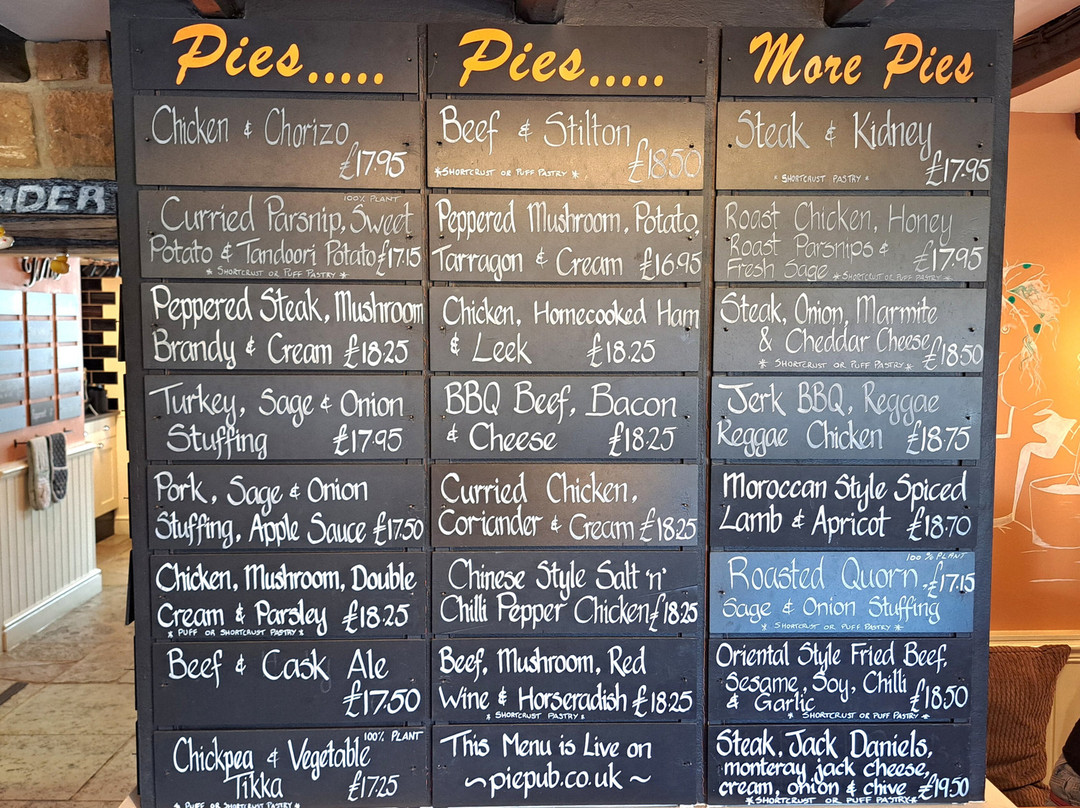 Pies.....
Chicken & Chorizo
£17.95
100% PLANT
Curried Parsnip, Sweet
Potato & Tandoori Potato £17.15
* SHORTCRUST OR PUFF PASTRY *
Peppered Steak, Mushroom
Brandy & Cream £18.25
Turkey, Sage & Onion
Stuffing £17.95
Pork, Sage & Onion
Stuffing, Apple Sauce £17.50
Chicken, Mushroom, Double
Cream & Parsley £18.25
* PUFF OR SHORTCRUST PASTRY *
Beef & Cask Ale
£17.50
100% PLANT
Chickpea & Vegetable
Tikka £17.25
* PUFF OR SHORTCRUST PASTRY *
Pies.....
Beef & Stilton
£18.50
*SHORTCRUST OR PUFF PASTRY *
Peppered Mushroom, Potato,
Tarragon & Cream £16.95
Chicken, Homecooked Ham
& Leek £18.25
BBQ Beef, Bacon
& Cheese £18.25
Curried Chicken,
Coriander & Cream £18.25
Chinese Style Salt 'n'
Chilli Pepper Chicken £18.25
Beef, Mushroom, Red
Wine & Horseradish £18.25
* SHORTCRUST PASTRY *
This Menu is Live on
~piepub.co.uk~
More Pies
Steak & Kidney
£17.95
* SHORTCRUST PASTRY *
Roast Chicken, Honey
Roast Parsnips &
Fresh Sage £17.95
*SHORTCRUST OR PUFF PASTRY*
Steak, Onion, Marmite
& Cheddar Cheese £18.50
* SHORTCRUST OR PUFF PASTRY *
Jerk BBQ, Reggae
Reggae Chicken £18.75
Moroccan Style Spiced
Lamb & Apricot £18.70
100% PLANT
Roasted Quorn, £17.15
Sage & Onion Stuffing
* SHORTCRUST OR PUFF PASTRY *
Oriental Style Fried Beef,
Sesame, Soy, Chilli
& Garlic £18.50
* SHORTCRUST OR PUFF PASTRY *
Steak, Jack Daniels,
monteray jack cheese,
cream, onion & chive £19.50
*SHORTCRUST OR PUFF PASTRY*